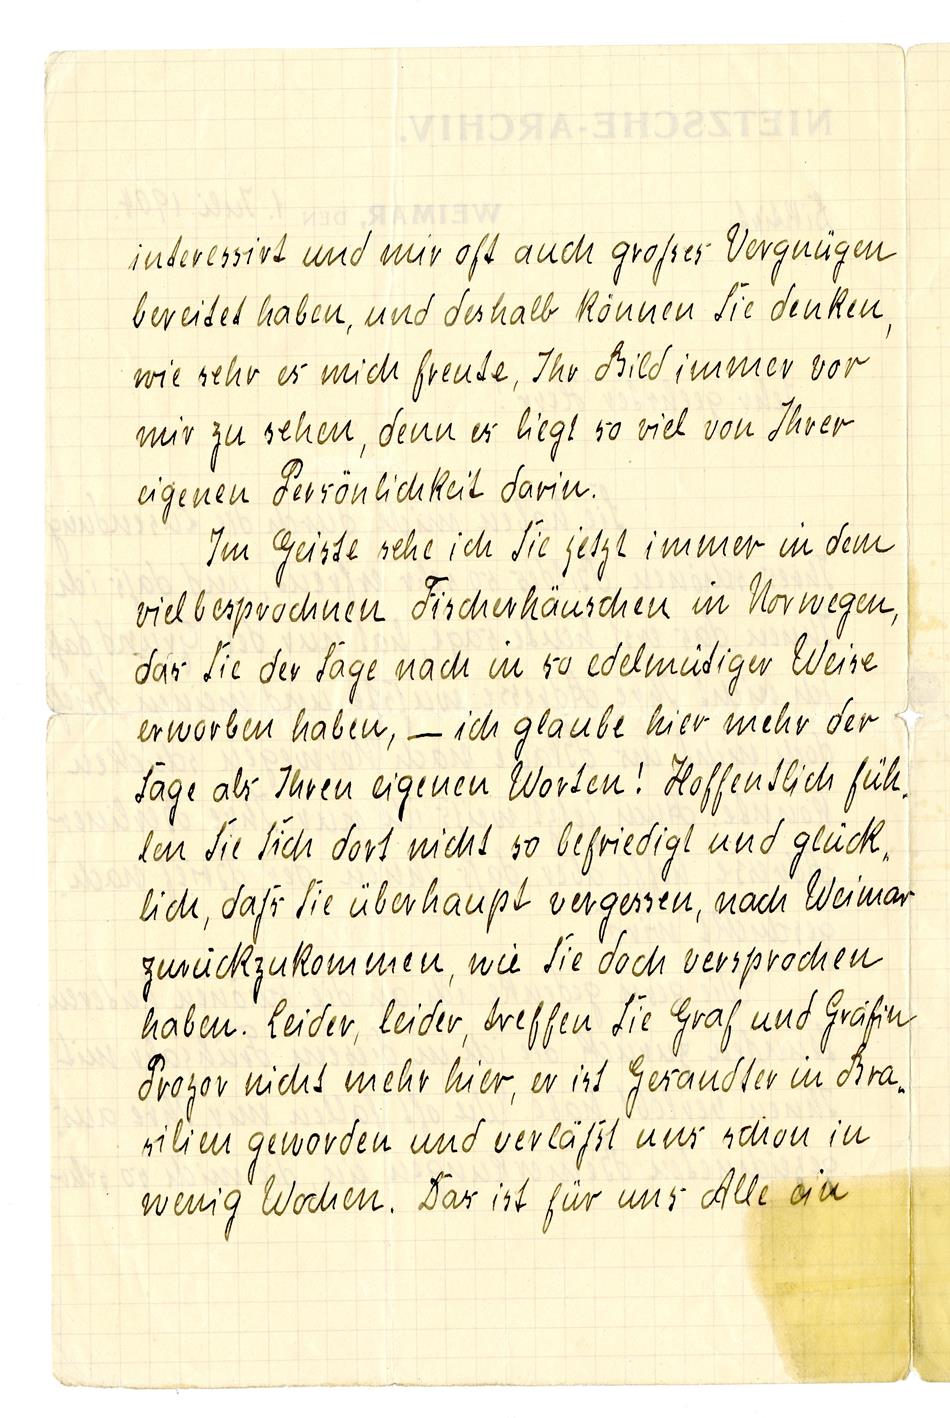 interessirt und mir oft auch großes Vergnügen
bereitet haben, und deshalb können Sie denken,
wie sehr es mich freute, Ihr Bild immer vor
mir zu sehen, denn es liegt so viel von Ihrer
eigenen Persönlichkeit darin.
Im Geiste sehe ich Sie jetzt immer in dem
vielbesprochnen Fischerhäuschen in Norwegen,
das Sie der Sage nach in so edelmütiger Weise
erworben haben, — ich glaube hier mehr der
Sage als Ihren eigenen Worten! Hoffentlich füh-
len Sie Sich dort nicht so befriedigt und glück-
lich, daß Sie überhaupt vergessen, nach Weimar
zurückzukommen, wie Sie doch versprochen
haben. Leider, leider, treffen Sie Graf und Gräfin
Prozor nicht mehr hier, er ist Gesandter in Bra-
silien geworden und verläßt uns schon in
wenig Wochen. Das ist für uns Alle ein